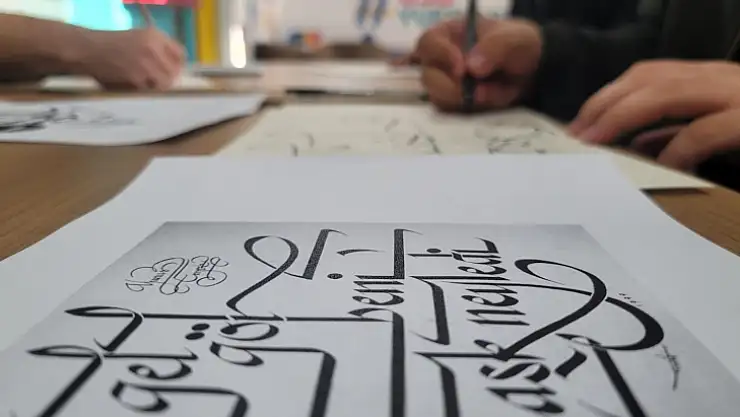 gel
gör
beni
aşk neyledi